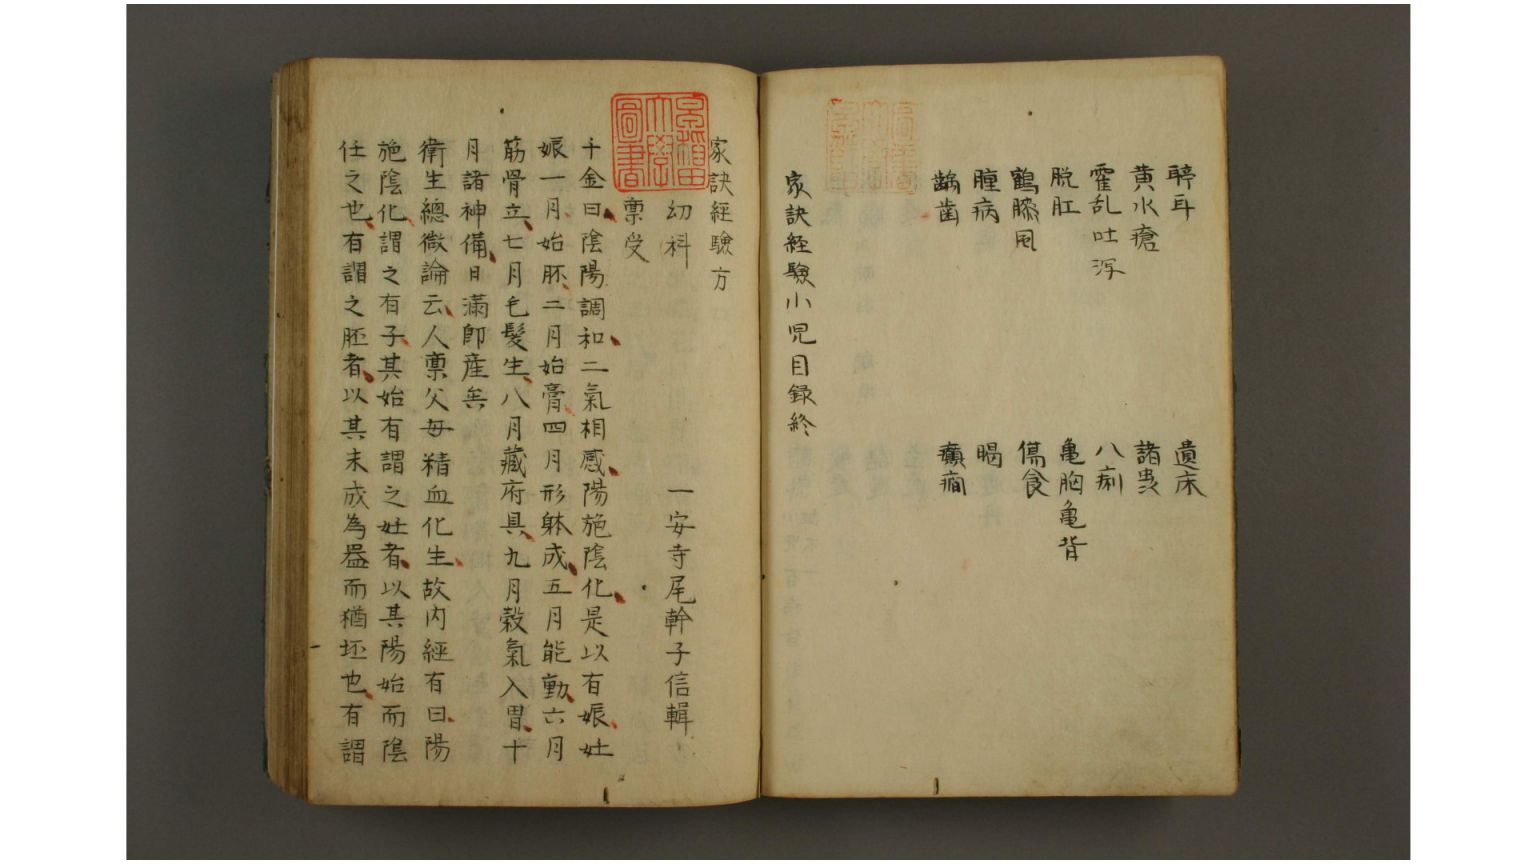 聤耳 遺床
黄水瘡 諸虫
霍乱吐泻 八痢
脱肛 亀胸亀背
鶴膝風 傷食
腫病 暍
齲歯 癲癇
家訣経驗小児目録終
家訣経驗方
幼科 一安寺尾幹子信輯
稟受
千金曰陰陽調和二氣相感陽施陰化是以有娠妊
娠一月始胚二月始膏四月形躰成五月能動六月
筋骨立七月毛髮生八月藏府具九月穀氣入胃十
月諸神備日滿卽産矣
衛生總微論云人稟父母精血化生故内經有曰陽
施陰化謂之有子其始有謂之妊者以其陽始而陰
任之也有謂之胚者以其未成為器而猶坯也有謂
早稲田
大學
圖書